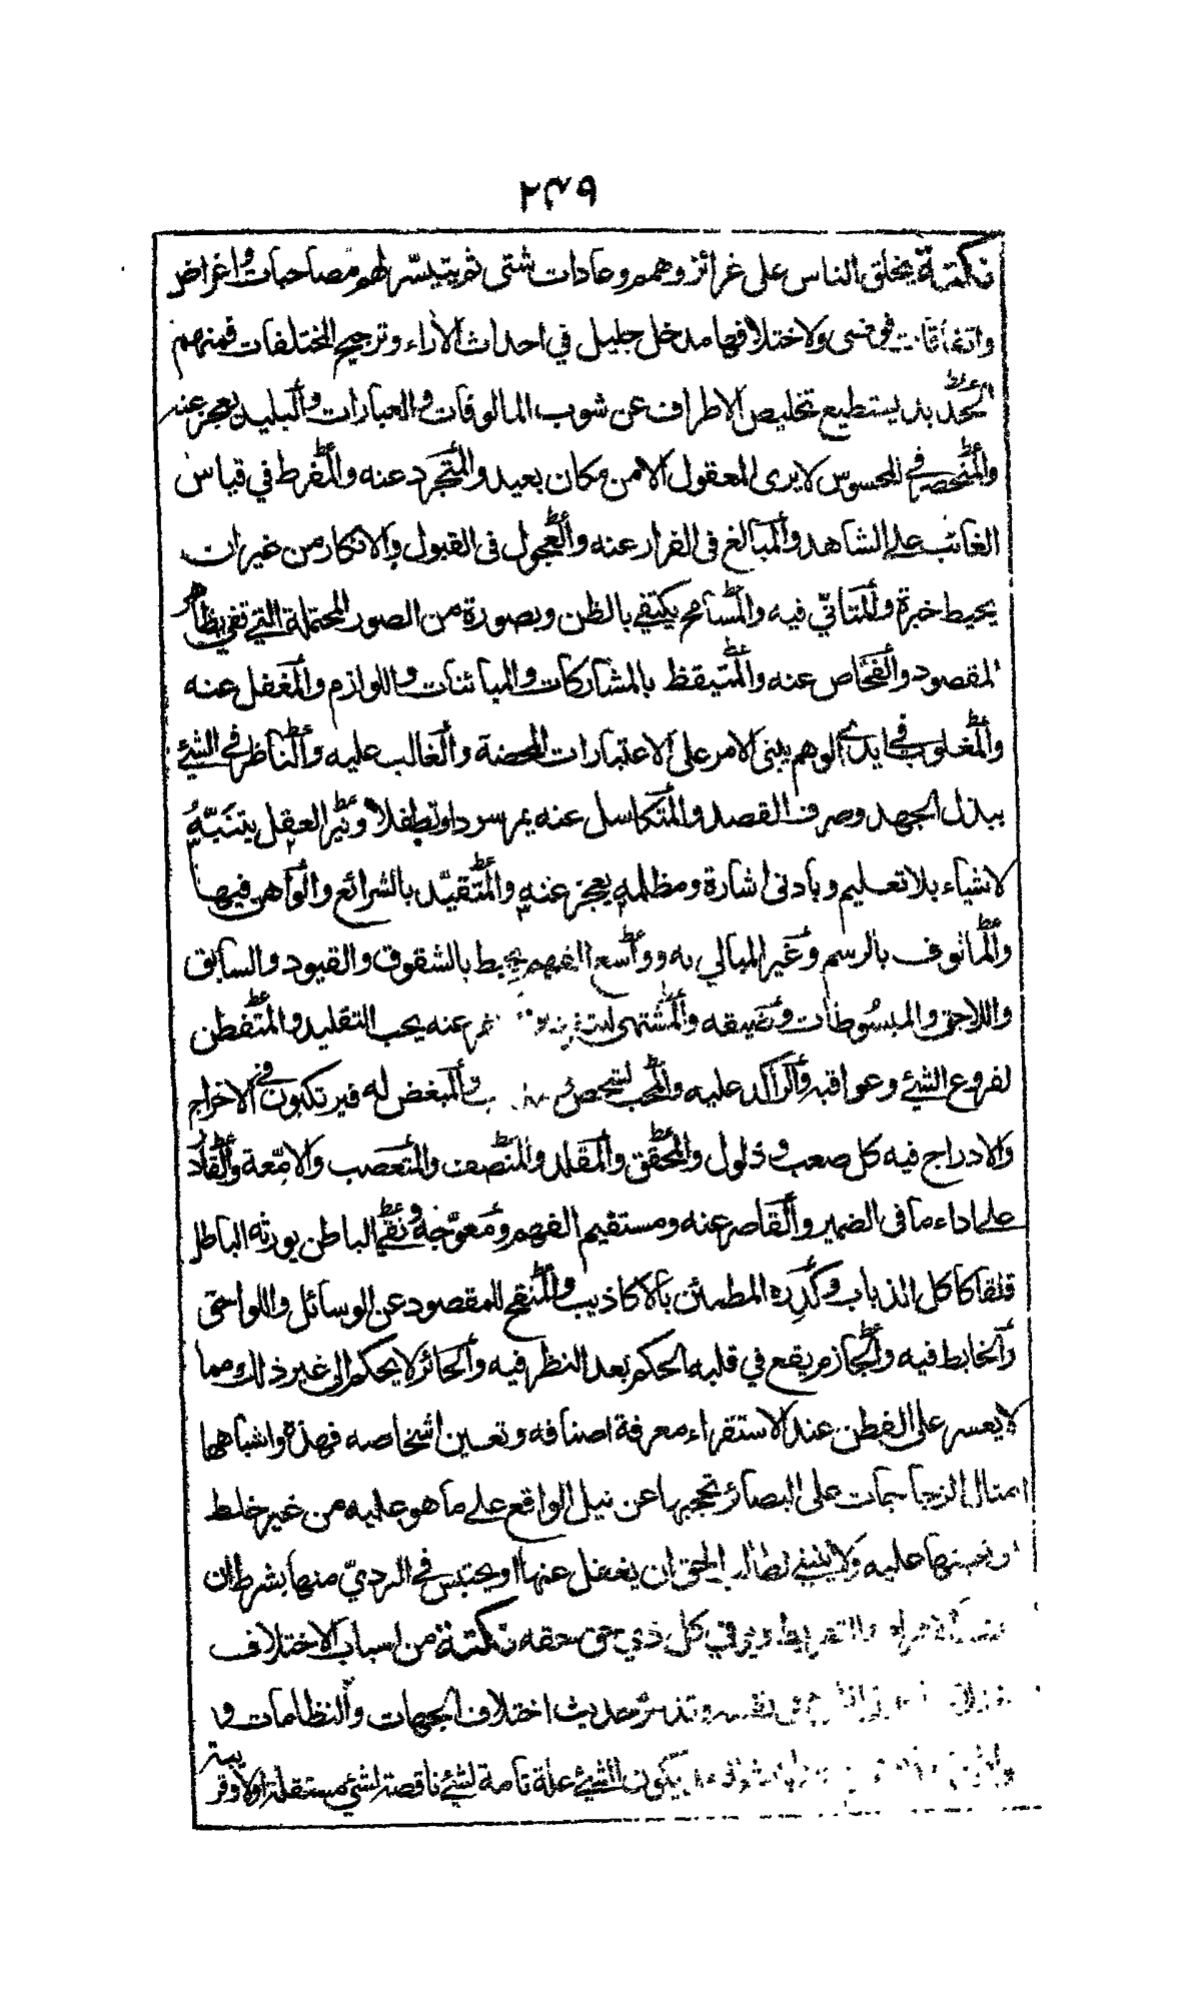 ٢٤٩
نكتة يخلق الناس على غرائز وهمم وعادات شتى ثم يتيسر لهم مصاحبات واغراض
واتفاقات فوضى ولاختلافها مدخل جليل في احداث الآراء وترجيح المختلفات فمنهم
يستطيع تخليص الاطراف عن شوب المالوفات والعبارات والبليد يعجز عنه
والمنحصر في المحسوس لا يرى المعقول الا من مكان بعيد والمتجرد عنه والمفرط في قياس
الغائب على الشاهد والمبالغ في الفرار عنه والعجول في القبول والانكار من غير ان
يحيط خبرة والمتاني فيه والمسامح يكتفي بالظن وبصورة من الصور المحتملة التي تفي بظاهر
المقصود والفحاص عنه والمتيقظ بالمشاركات والمباينات واللوازم والمغفل عنه
والمغلوب في ايدي الوهم يبنى الامر على الاعتبارات المحضة والغالب عليه والناظر في الشئ
ببذل الجهد وصرف القصد والمتكاسل عنه يمر سردا وتطفلا ونير العقل يتنبه
لاشياء بلا تعليم وبادنى اشارة ومظلمه يعجز عنه والمتقيد بالشرائع والواهن فيها
والمانوف بالرسم وغير المبالي به وواسع الفهم يحيط بالشقوق والقيود والسابق
واللاحق والمبسوطات وضيقه والمشتهى عنه يحب التقليد والمتفطن
لفروع الشئ وعواقبه والراكد عليه والمحب لشخص والمبغض له فيرتكبون في الاخراج
والادراج فيه كل صعب وذلول والمحقق والمقلد والمنصف والمتعصب والامعة والقادر
على اداء ما في الضمير والقاصر عنه ومستقيم الفهم ومعوجه ونقي الباطن يورثه الباطل
قلقا كاكل الذباب وكدره المطمئن بالاكاذيب والمنقح للمقصود عن الوسائل واللواحق
والخابط فيه والجازم يقع في قلبه الحكم بعد النظر فيه والحائر لا يحكم الى غير ذلك ومما
لا يعسر على الفطن عند الاستقراء معرفة اصنافه وتعيين اشخاصه فهذه واشباهها
امثال الزجاجات على البصائر تحجبها عن نيل الواقع على ما هو عليه من غير خلط
عليه ولا ينبغي لطالب الحق ان يغفل عنها او يحتبس في الردي منها بشرط ان
والتفريط ويوفي كل ذي حق حقه نكتة من اسباب الاختلاف
وتذكر حديث اختلاف الجهات والنظامات وا
يكون الشئ علة تامة لشئ ناقصة لشئ مستقلة اولا وقريبة